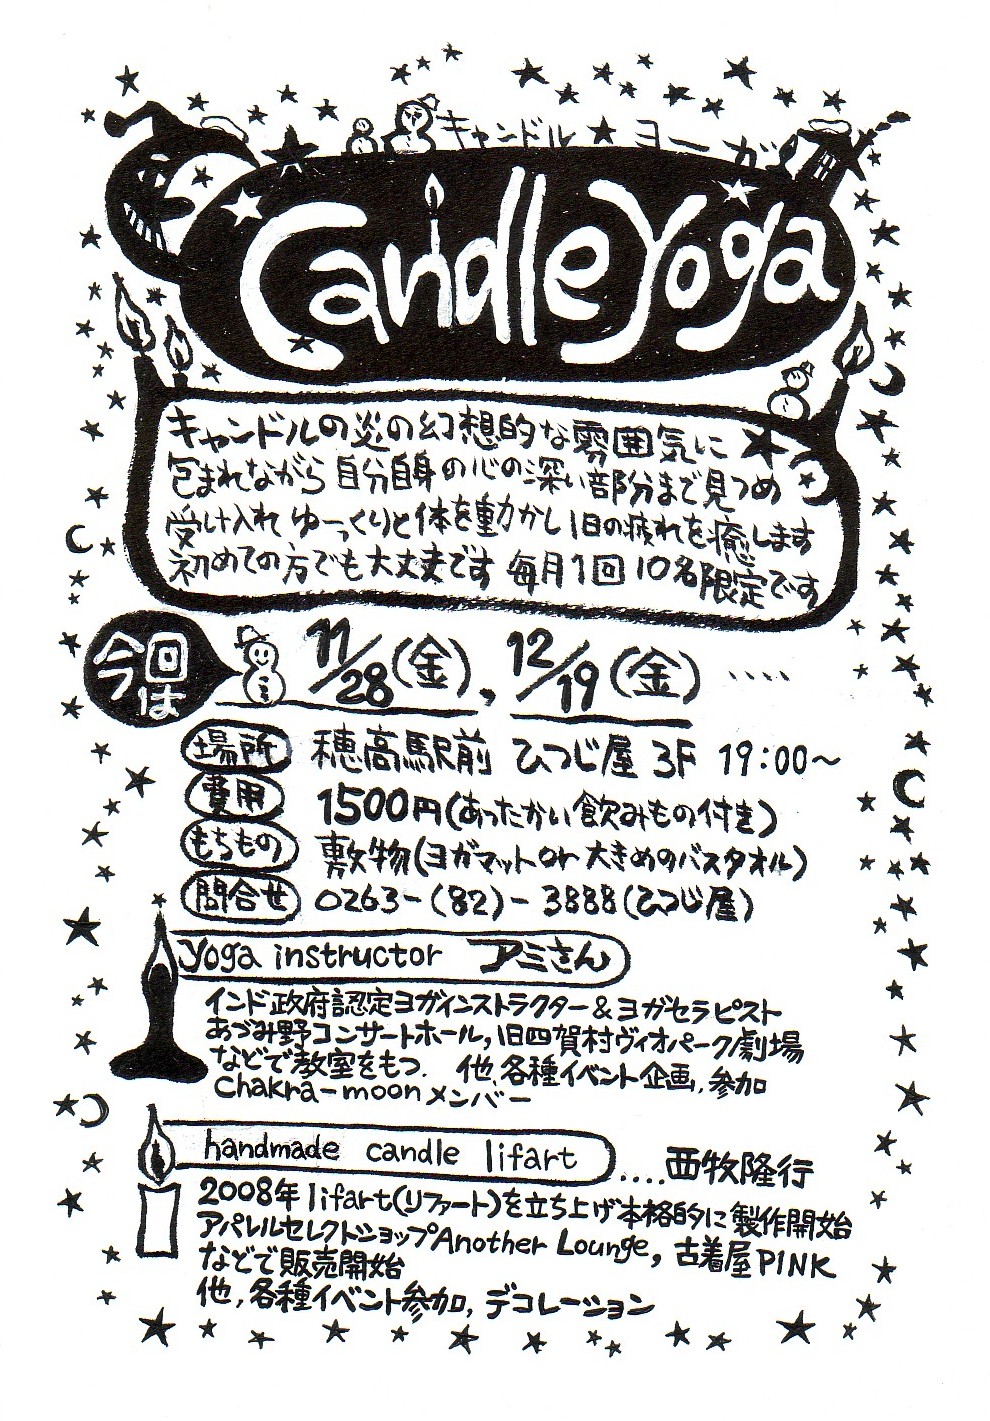 キャンドル★ヨーガ
Candle Yoga
キャンドルの炎の幻想的な雰囲気に
包まれながら自分自身の心の深い部分まで見つめ
受け入れゆっくりと体を動かし1日の疲れを癒します
初めての方でも大丈夫です 毎月1回10名限定です
今回は 11/28(金), 12/19(金) ....
場所 穂高駅前 ひつじ屋 3F 19:00〜
費用 1500円(あったかい飲みもの付き)
もちもの 敷物(ヨガマット or 大きめのバスタオル)
問合せ 0263-(82)-3888(ひつじ屋)
yoga instructor アミさん
インド政府認定ヨガインストラクター&ヨガセラピスト
あづみ野コンサートホール,旧四賀村ヴィオパーク劇場
などで教室をもつ. 他,各種イベント企画,参加
chakra-moonメンバー
handmade candle lifart ....西牧隆行
2008年lifart(リファート)を立ち上げ本格的に製作開始
アパレルセレクトショップAnother Lounge, 古着屋PINK
などで販売開始
他,各種イベント参加,デコレーション